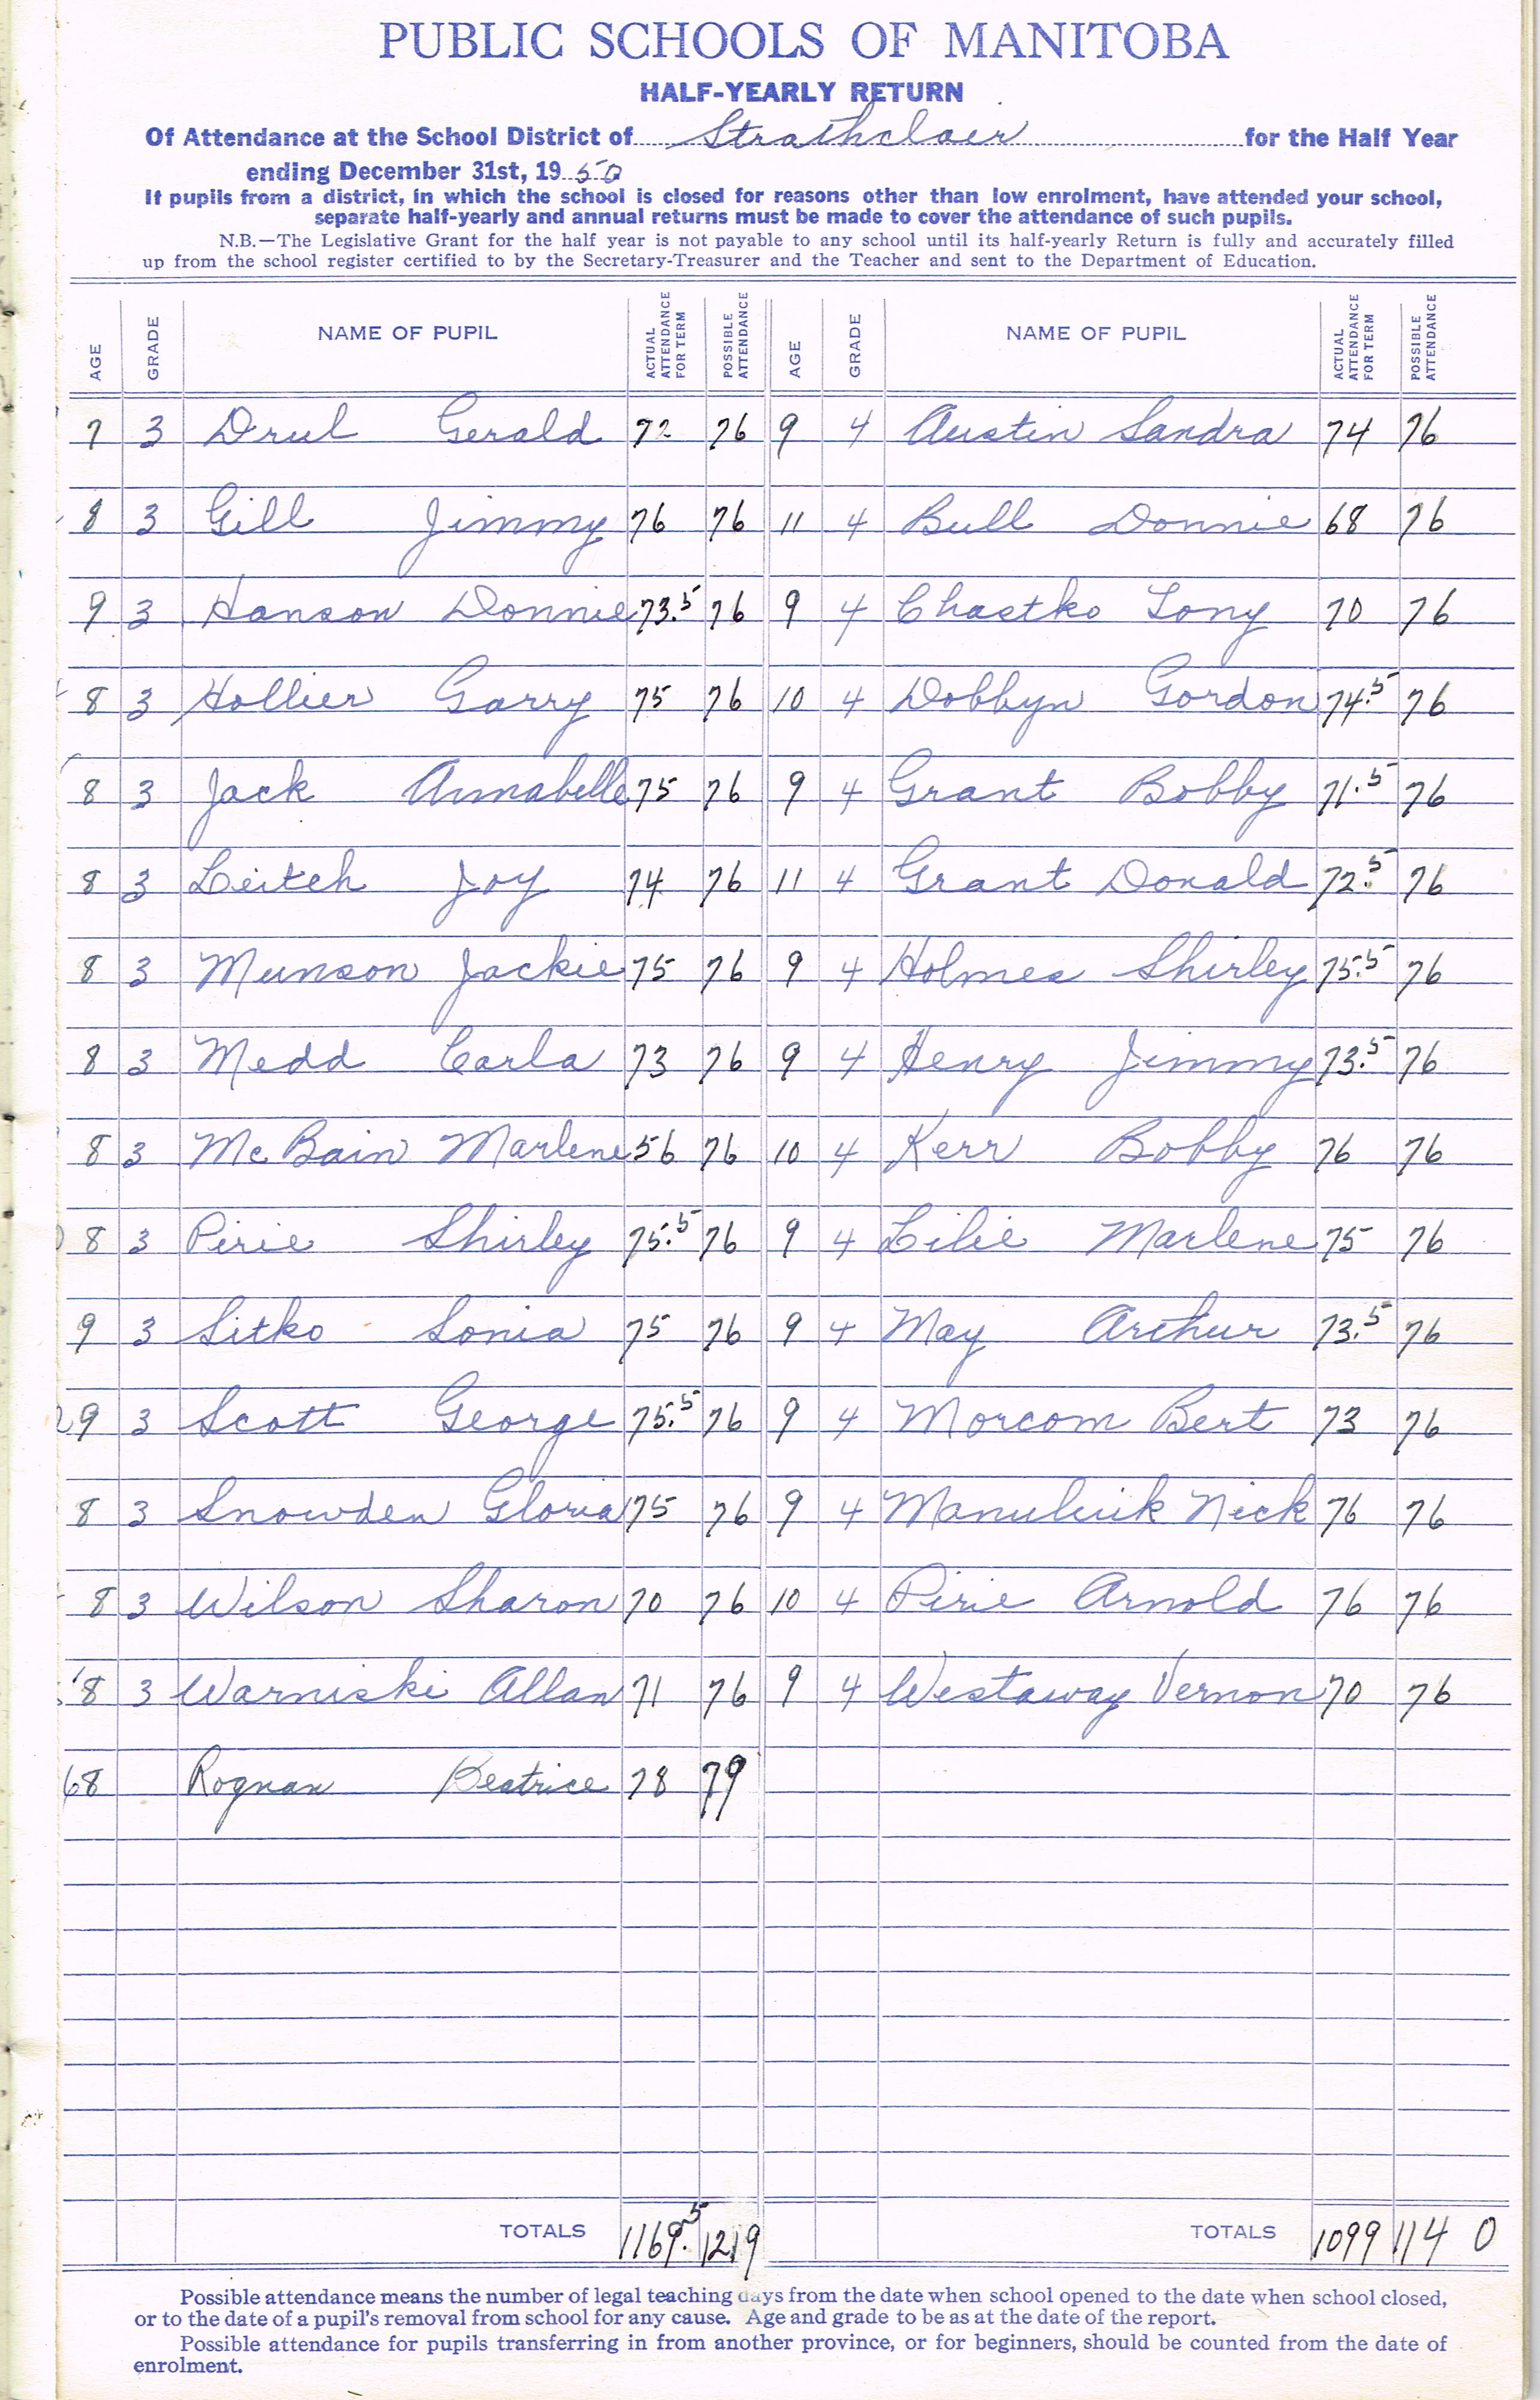 PUBLIC SCHOOLS OF MANITOBA
HALF-YEARLY RETURN
Of Attendance at the School District of Strathclair for the Half Year
ending December 31st, 1950
If pupils from a district, in which the school is closed for reasons other than low enrolment, have attended your school,
separate half-yearly and annual returns must be made to cover the attendance of such pupils.
N.B.—The Legislative Grant for the half year is not payable to any school until its half-yearly Return is fully and accurately filled
up from the school register certified to by the Secretary-Treasurer and the Teacher and sent to the Department of Education.
AGE GRADE NAME OF PUPIL ACTUAL ATTENDANCE FOR TERM POSSIBLE ATTENDANCE AGE GRADE NAME OF PUPIL ACTUAL ATTENDANCE FOR TERM POSSIBLE ATTENDANCE
7 3 Drul Gerald 72 76 9 4 Austin Sandra 74 76
8 3 Gill Jimmy 76 76 11 4 Bull Donnie 68 76
9 3 Hanson Donnie 73.5 76 9 4 Chastko Tony 70 76
8 3 Hollier Garry 75 76 10 4 Dobbyn Gordon 74.5 76
8 3 Jack Annabelle 75 76 9 4 Grant Bobby 71.5 76
8 3 Leitch Joy 74 76 11 4 Grant Donald 72.5 76
8 3 Munson Jackie 75 76 9 4 Holmes Shirley 75.5 76
8 3 Medd Carla 73 76 9 4 Henry Jimmy 73.5 76
8 3 McBain Marlene 56 76 10 4 Kerr Bobby 76 76
8 3 Pirie Shirley 75.5 76 9 4 Lilie Marlene 75 76
9 3 Sitko Sonia 75 76 9 4 May Arthur 73.5 76
9 3 Scott George 75.5 76 9 4 Morcom Bert 73 76
8 3 Snowden Gloria 75 76 9 4 Manuliuk Nick 76 76
8 3 Wilson Sharon 70 76 10 4 Pirie Arnold 76 76
8 3 Warniski Allan 71 76 9 4 Westaway Vernon 70 76
8 Rognan Beatrice 78 79
TOTALS 1169.5 1219 TOTALS 1099 1140
Possible attendance means the number of legal teaching days from the date when school opened to the date when school closed,
or to the date of a pupil's removal from school for any cause. Age and grade to be as at the date of the report.
Possible attendance for pupils transferring in from another province, or for beginners, should be counted from the date of
enrolment.